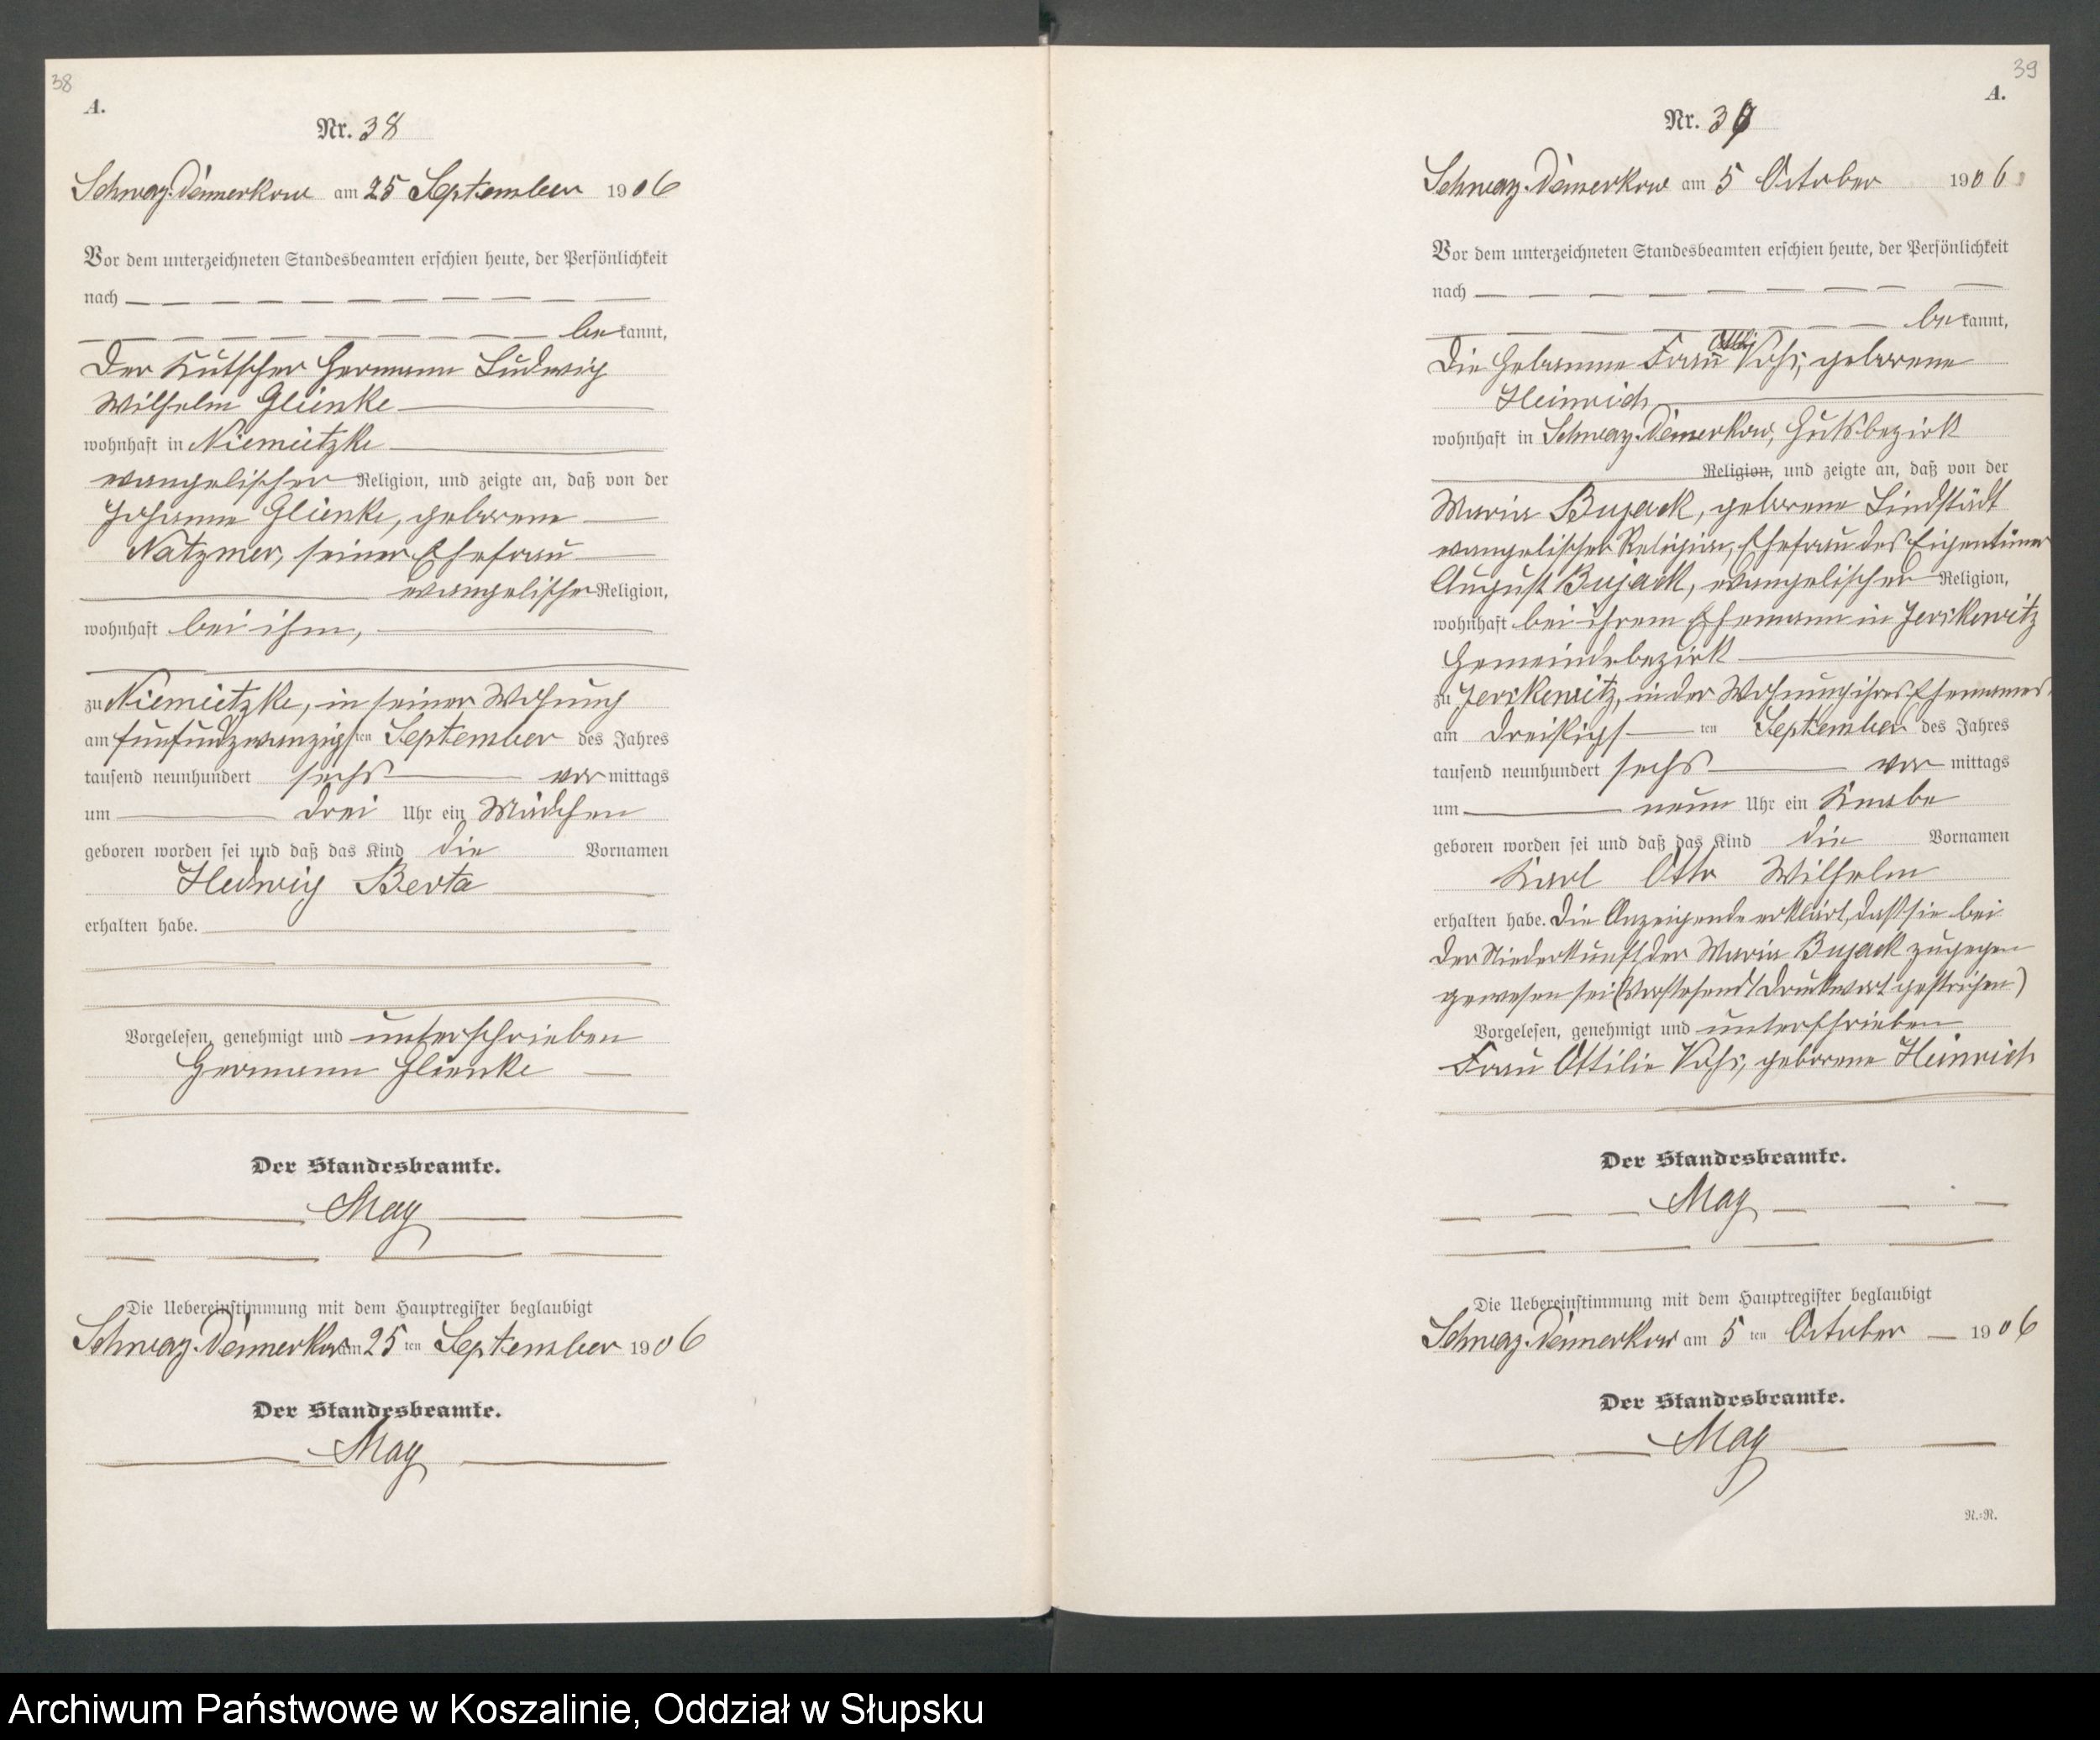 38
A.
Nr. 38
Schwarz-Damerkow am 25 September 1906
Vor dem unterzeichneten Standesbeamten erschien heute, der Persönlichkeit
nach
bekannt,
der Kutscher Hermann Ludwig
Wilhelm Glienke
wohnhaft in Niemietzke
evangelischer Religion, und zeigte an, daß von der
Johanne Glienke, geborene
Natzmer, seiner Ehefrau
evangelischer Religion,
wohnhaft bei ihm,
zu Niemietzke, in seiner Wohnung
am fünfundzwanzigsten September des Jahres
tausend neunhundert sechs vormittags
um drei Uhr ein Mädchen
geboren worden sei und daß das Kind die Vornamen
Hedwig Berta
erhalten habe.
Vorgelesen, genehmigt und unterschrieben
Hermann Glienke
Der Standesbeamte.
May
Die Uebereinstimmung mit dem Hauptregister beglaubigt
Schwarz-Damerkow am 25 ten September 1906
Der Standesbeamte.
May
39
A.
Nr. 39
Schwarz-Damerkow am 5 October 1906
Vor dem unterzeichneten Standesbeamten erschien heute, der Persönlichkeit
nach
bekannt,
die Hebamme Frau Voß, geborene
Heinrich
wohnhaft in Schwarz-Damerkow, Gutsbezirk
Religion, und zeigte an, daß von der
Maria Bujack, geborene Lindstädt
evangelischer Religion, Ehefrau des Eigentümer
August Bujack, evangelischer Religion,
wohnhaft bei ihrem Ehemann in Jerskewitz
Gemeindebezirk
zu Jerskewitz, in der Wohnung ihres Ehemannes
am dreißigsten September des Jahres
tausend neunhundert sechs vormittags
um neun Uhr ein Knabe
geboren worden sei und daß das Kind die Vornamen
Karl Otto Wilhelm
erhalten habe. Die Anzeigende erklärt, daß sie bei
der Niederkunft der Maria Bujack zugegen
gewesen sei (Vorstehend 1 Druckwort gestrichen)
Vorgelesen, genehmigt und unterschrieben
Frau Ottilie Voß, geborene Heinrich
Der Standesbeamte.
May
Die Uebereinstimmung mit dem Hauptregister beglaubigt
Schwarz-Damerkow am 5 ten October 1906
Der Standesbeamte.
May
N.-R.
Archiwum Państwowe w Koszalinie, Oddział w Słupsku